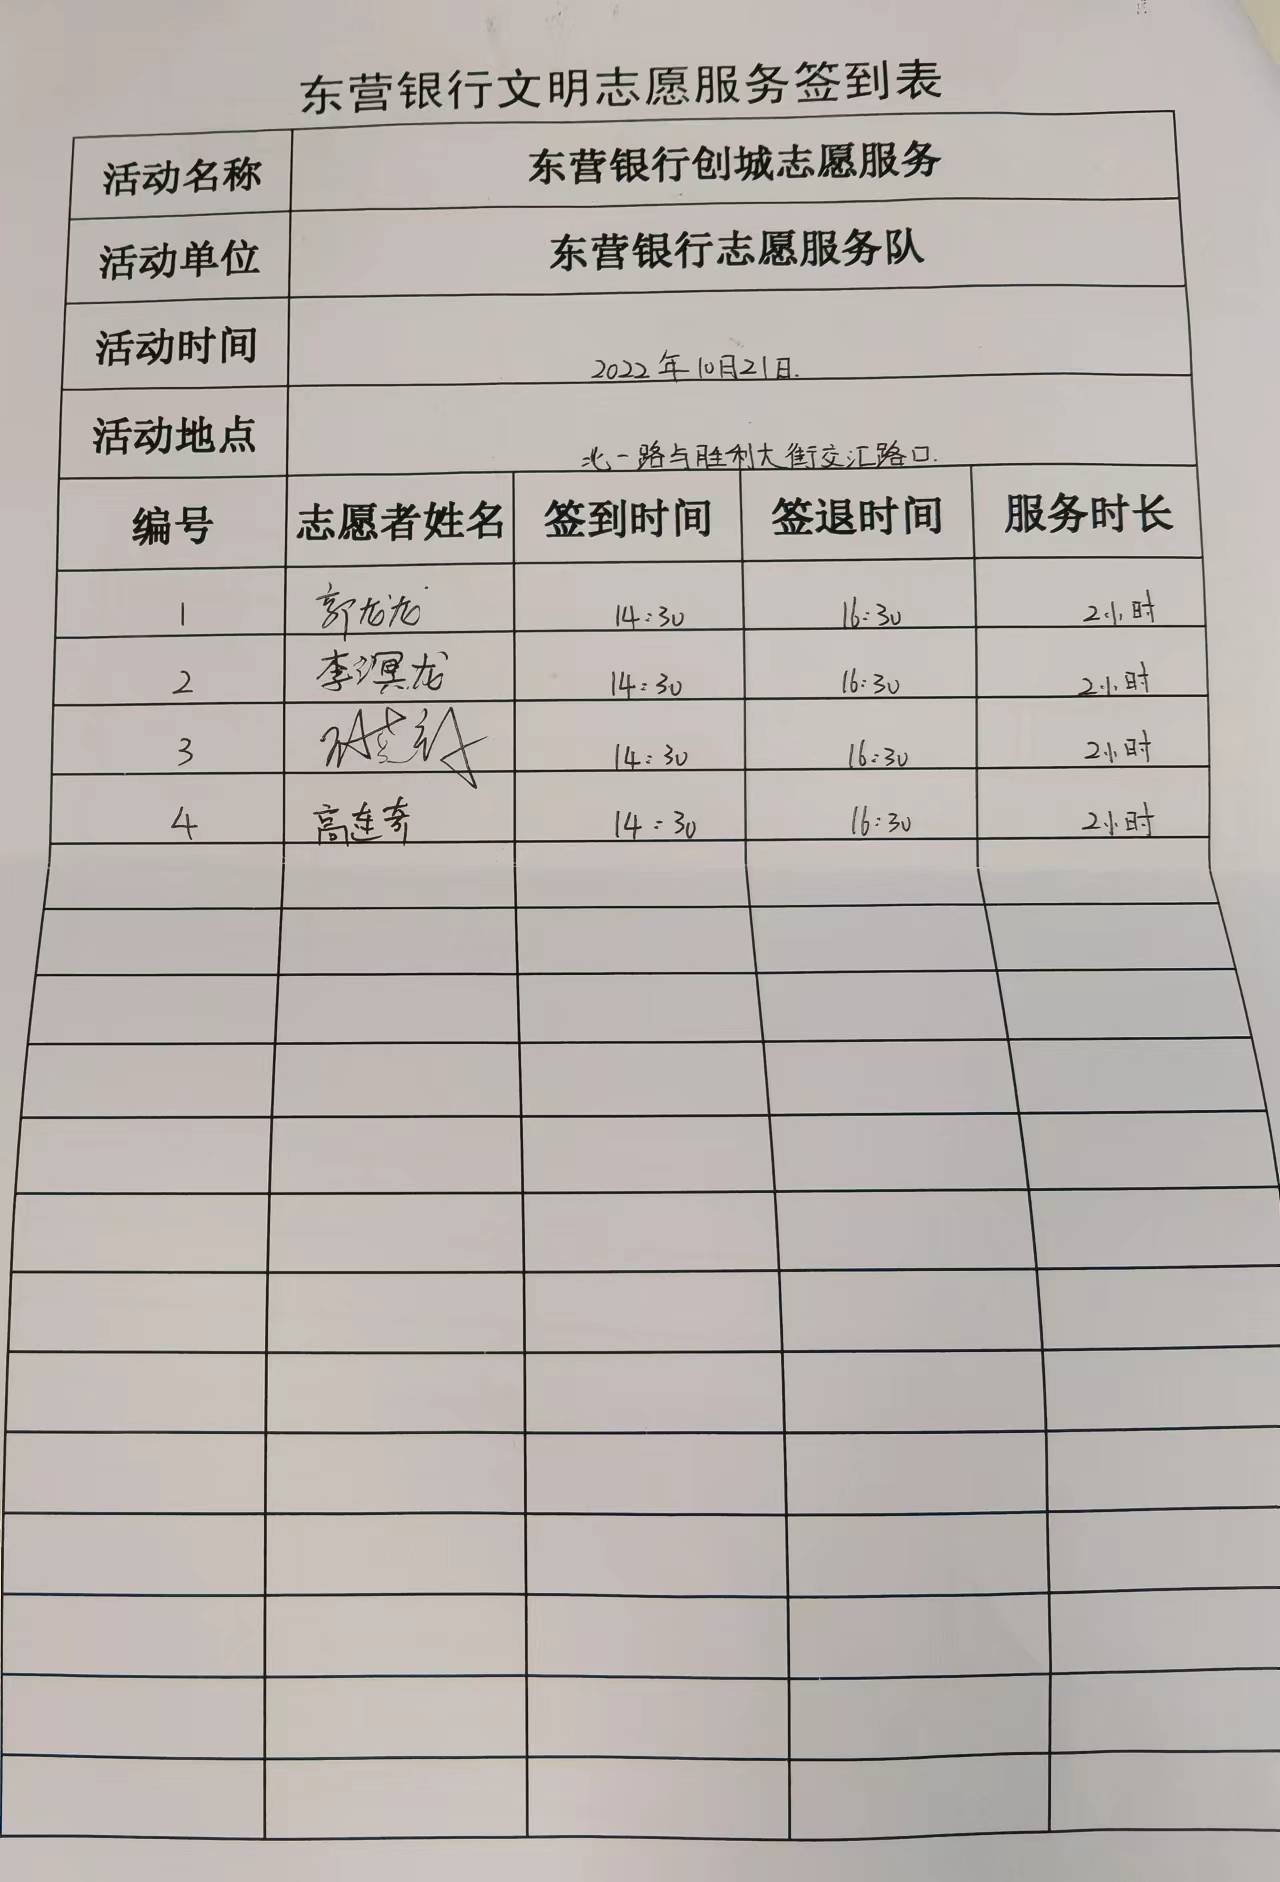 东营银行文明志愿服务签到表
活动名称 东营银行创城志愿服务
活动单位 东营银行志愿服务队
活动时间 2022年10月21日.
活动地点 北一路与胜利大街交汇路口.
编号 志愿者姓名 签到时间 签退时间 服务时长
1 郭龙龙 14:30 16:30 2小时
2 李淏龙 14:30 16:30 2小时
3 14:30 16:30 2小时
4 高连奇 14:30 16:30 2小时